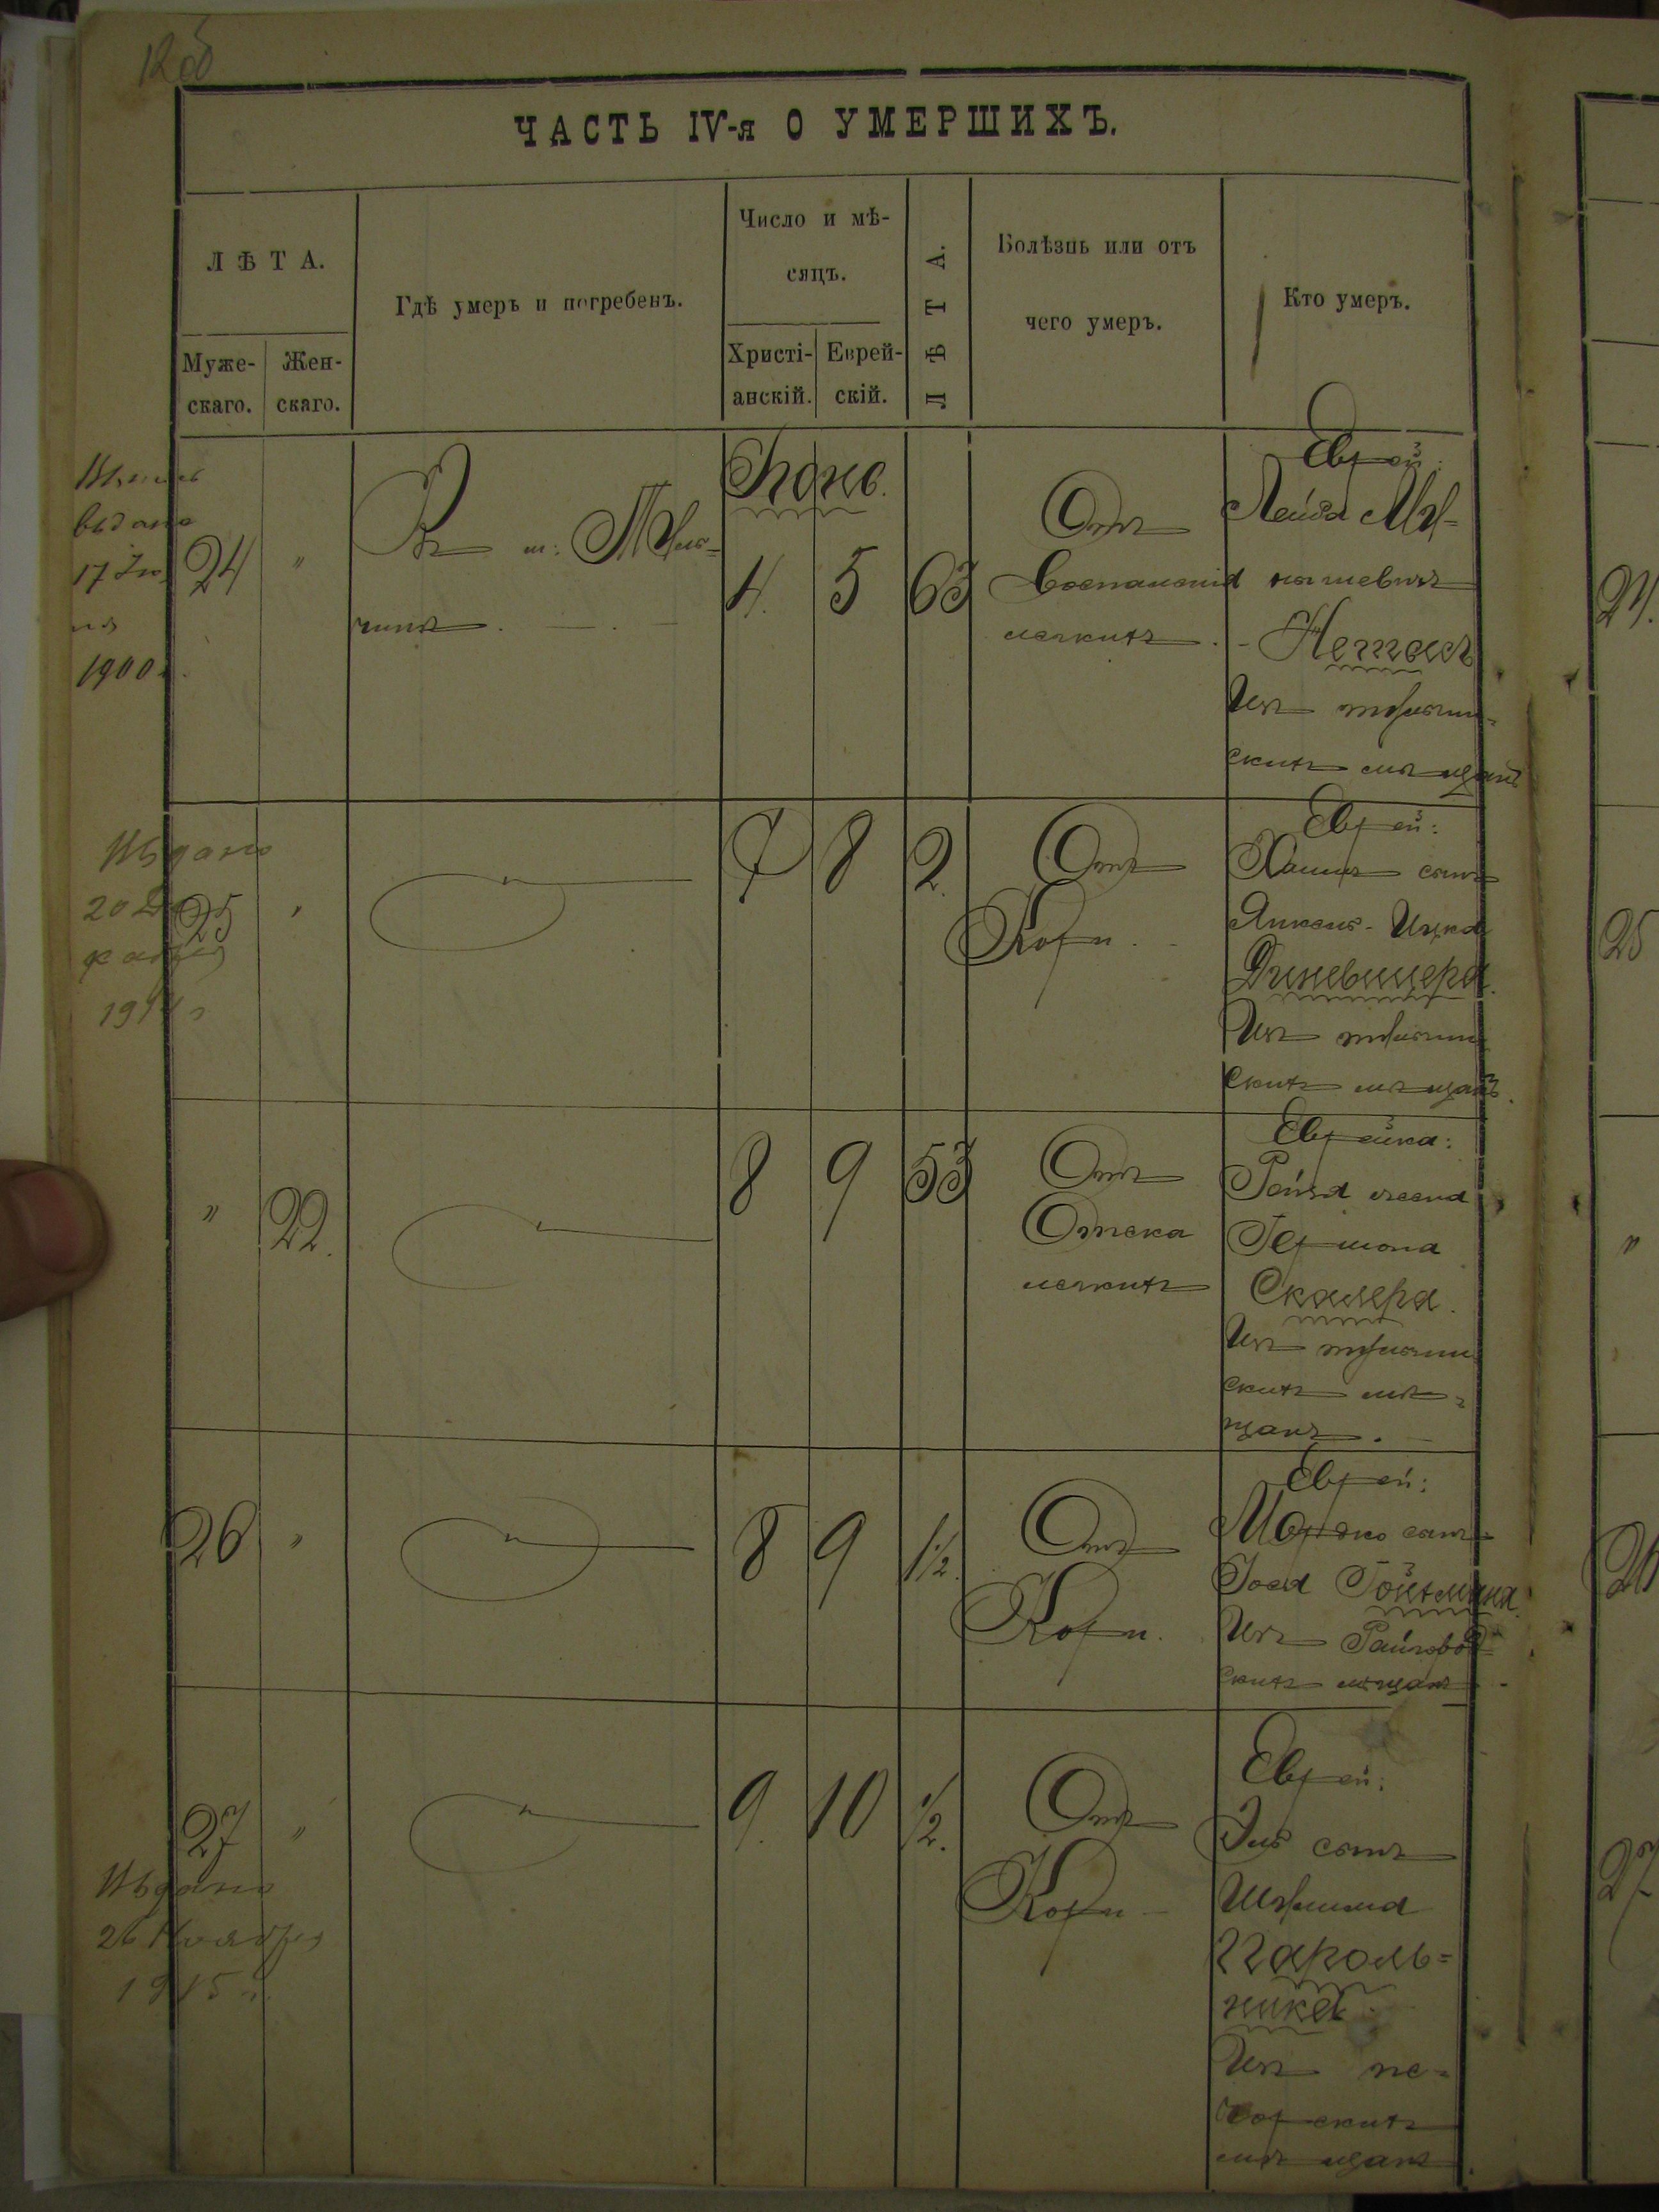 12об
ЧАСТЬ IV-я О УМЕРШИХЪ.
ЛѢТА.
Муже-
скаго.
Жен-
скаго.
Гдѣ умеръ и погребенъ.
Число и мѣ-
сяцъ.
Христі-
анскій.
Еврей-
скій.
ЛѢТА.
Болѣзнь или отъ
чего умеръ.
Кто умеръ.
выдано
17
1900
24
"
Въ м:
Іюнь.
4.
5
63
Отъ
Воспаленія
легкихъ.
Еврей:
Лейба
Из
скихъ мѣщанъ
Выдано
20
25
"
7
8
2.
Отъ
Кори.
Еврей:
Хаимъ сынъ
Янкель-Ицка
Диневицера.
Изъ
скихъ мѣщанъ.
"
22.
8
9
53
Отъ
Отека
легкихъ
Еврейка:
Рейзя жена
Гершона
Скалера.
Изъ
скихъ мѣ-
щанъ.
26
"
8
9
1½.
Отъ
Кори.
Еврей:
Мордко сынъ
Іося Гойхмана.
Изъ Райгород-
скихъ мѣщанъ
27
"
Выдано
26 Ноября
1915 г.
9.
10
½.
Отъ
Кори
Еврей:
Эль сынъ
Пароль-
ника.
Изъ пе-
чорскихъ
мѣщанъ
24.
25
"
26
27